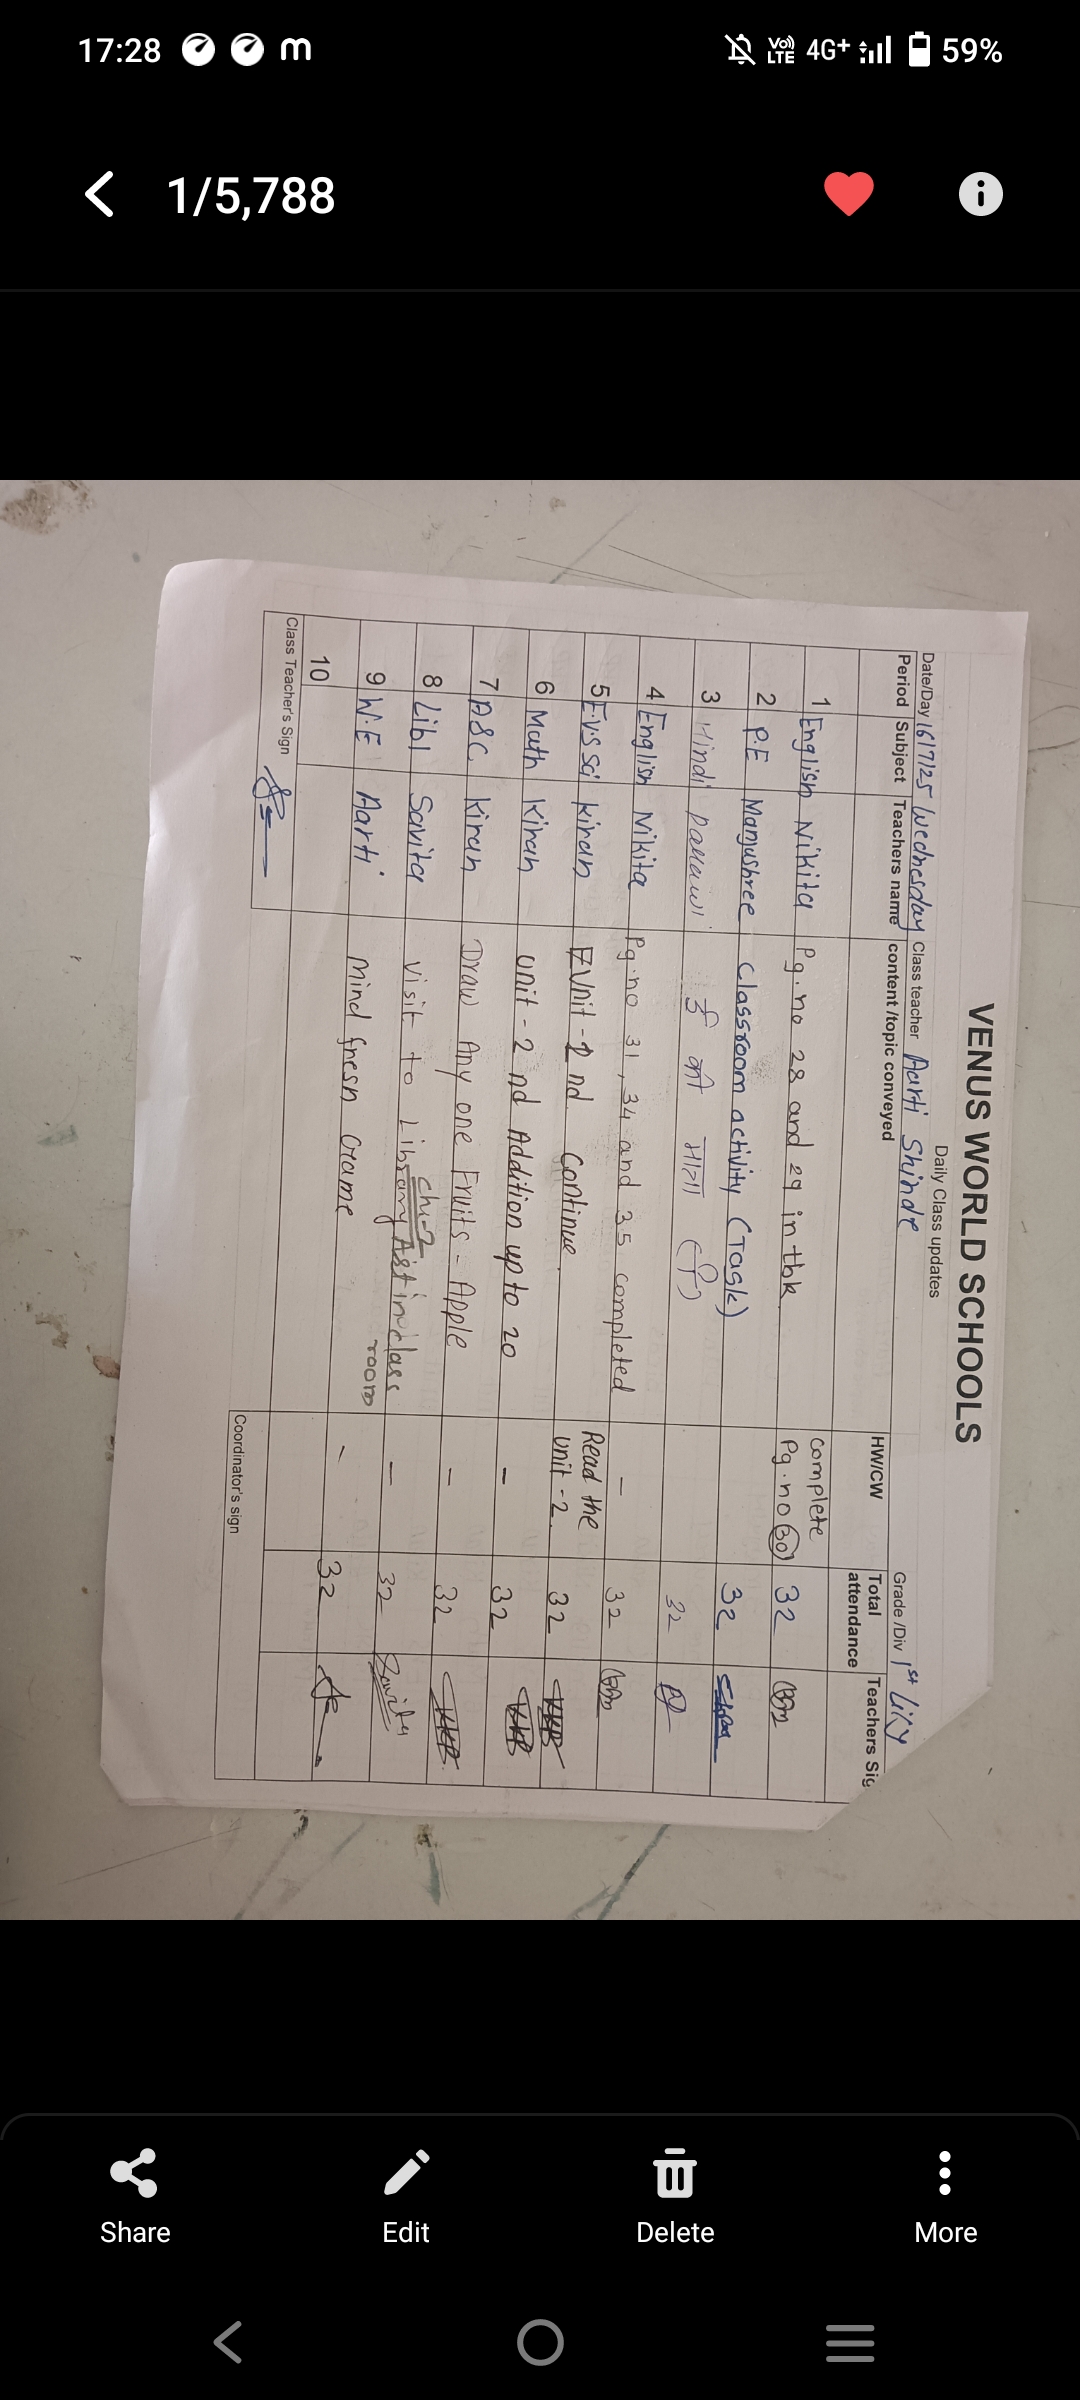 17:28 m Vo) LTE 4G+ 59%
1/5,788
VENUS WORLD SCHOOLS
Daily Class updates
Date/Day 16/7/25 Wednesday Class teacher Aarti Shinde Grade /Div 1st Lily
Period Subject Teachers name content /topic conveyed HW/CW Total attendance Teachers Sig
1 English Nikita Pg.no 28 and 29 in tbk complete Pg.no 30 32
2 P.E Manjushree Classroom activity (Task) 32
3 Hindi Pallavi की मात्रा 32
4 English Nikita Pg.no 31, 34 and 35 completed - 32
5 E.V.S Sci Kiran Unit - 2 nd Continue. Read the unit - 2. 32
6 Math Kiran unit - 2 nd Addition up to 20 - 32
7 A&C Kiran Draw Any one Fruits - Apple - 32
8 Lib Savita visit to Library ch-2 in class room - 32 Savita
9 W.E Aarti Mind fresh Game - 32
10
Class Teacher's Sign Coordinator's sign
Share Edit Delete More